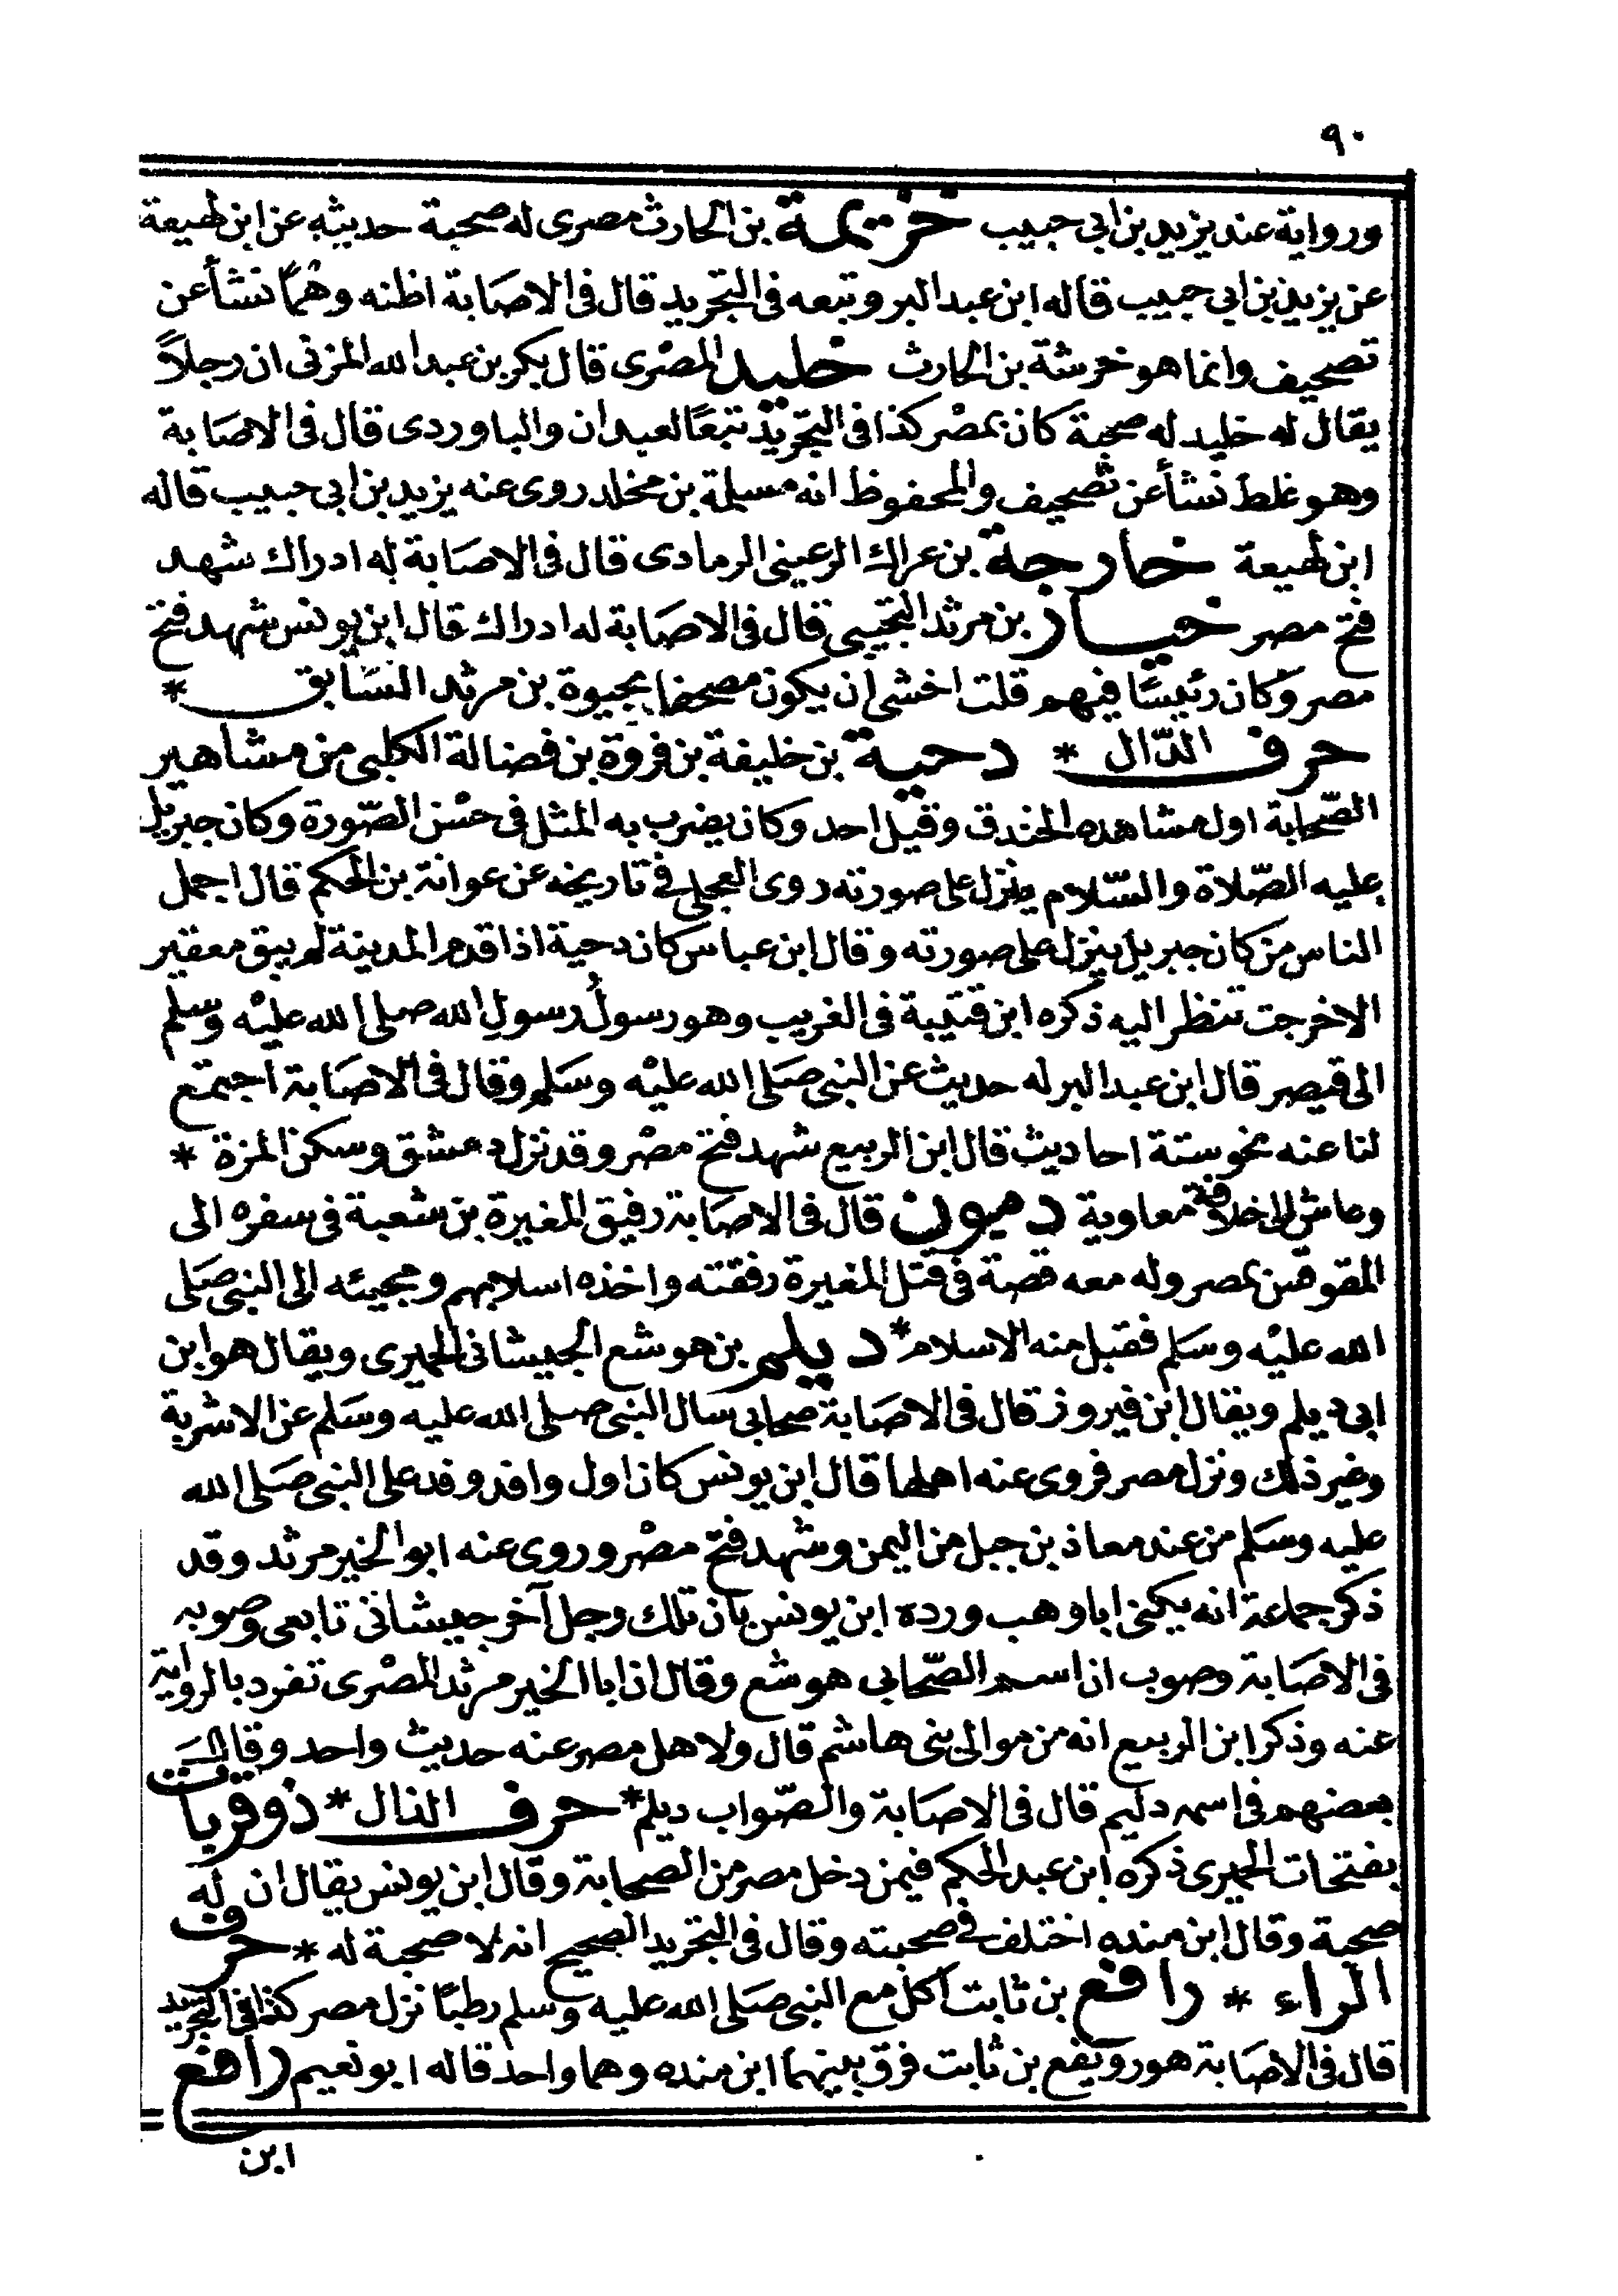 ٩٠
ورواية عند يزيد بن ابي حبيب خزيمة بن الحارث مصرى له صحبة حديثه عن ابن لهيعة
عن يزيد بن ابي حبيب قاله ابن عبد البر وتبعه فى التجريد قال فى الاصَابة اظنه وهْمًا نشأ عن
تصحيف وانما هو خرشة بن الحارث خليد المصْرى قال بكر بن عبد الله المزنى ان رجلاً
يقال له خليد له صحبة كان بمصْر كذا فى التجريد تبعًا لعبدان والباوردى قال فى الاصَابة
وهو غلط نشأ عن تصحيف والمحفوظ انه مسلمة بن مخلد روى عنه يزيد بن ابى حبيب قاله
ابن لهيعة خارجة بن عراك الرعينى الرمادى قال فى الاصَابة له ادراك شهد
فتح مصر خيار بن مرثد التجيبى قال فى الاصَابة له ادراك قال ابن يونس شهد فتح
مصر وكان رئيسًا فيهم قلت اخشى ان يكون مصحفا بحيوة بن مرثد السَابق *
حرف الدّال * دحية بن خليفة بن فروة بن فضالة الكلبى من مشاهير
الصّحابة اول مشاهده الخندق وقيل احد وكان يضرب به المثل فى حسْن الصّورة وكان جبريل
عليه الصّلاة والسّلام ينزل على صورته روى العجلى فى تاريخه عن عوانة بن الحكم قال اجمل
الناس من كان جبريل ينزل على صورته وقال ابن عباس كان دحية اذا قدم المدينة لم يبق معقير
الا خرجت تنظر اليه ذكره ابن قتيبة فى الغريب وهو رسولُ رسول الله صلى الله عليْه وسلم
الى قيصر قال ابن عبد البر له حديث عن النبى صَلى الله عليْه وسَلم وقال فى الاصَابة اجتمع
لنا عنه نحو ستة احاديث قال ابن الربيع شهد فتح مصْر وقد نزل دمشق وسكن المزة *
وعاش الى خلافة معاوية دميون قال فى الاصَابة رفيق المغيرة بن شعبة فى سفره الى
المقوقس بمصر وله معه قصة فى قتل المغيرة رفقته واخذه اسلابهم ومجيئه الى النبى صَلى
الله عليْه وسَلم فقبل منه الاسلام * ديلم بن هوشع الجيشانى الحميرى ويقال هو ابن
ابى ديلم ويقال ابن فيروز قال فى الاصَابة صحابى سال النبى صلى الله عليه وسَلم عن الاشربة
وغير ذلك ونزل مصر فروى عنه اهلها قال ابن يونس كان اول وافد وفد على النبى صَلى الله
عليه وسَلم من عند معاذ بن جبل من اليمن وشهد فتح مصْر وروى عنه ابو الخير مرثد وقد
ذكر جماعة انه يكنى ابا وهب ورده ابن يونس بان تلك رجل آخر جيشانى تابعى وصوبه
فى الاصَابة وصوب ان اسم الصّحابى هوشع وقال ان ابا الخير مرثد المصْرى تفرد بالرواية
عنه وذكر ابن الربيع انه من موالى بنى هاشم قال ولاهل مصر عنه حديث واحد وقال
بعضهم فى اسمه دليم قال فى الاصَابة والصّواب ديلم * حرف الذال * ذوقربات
بفتحات الحميرى ذكره ابن عبد الحكم فيمن دخل مصر من الصحابة وقال ابن يونس يقال ان له
صحبة وقال ابن منده اختلف فى صحبته وقال فى التجريد الصحيح انه لا صحبة له * حرف
الراء * رافع بن ثابت اكل مع النبى صَلى الله عليه وسلم رطبًا نزل مصر كذا فى التجريد
قال فى الاصَابة هو رويفع بن ثابت فرق بينهما ابن منده وهما واحد قاله ابو نعيم رافع
ابن